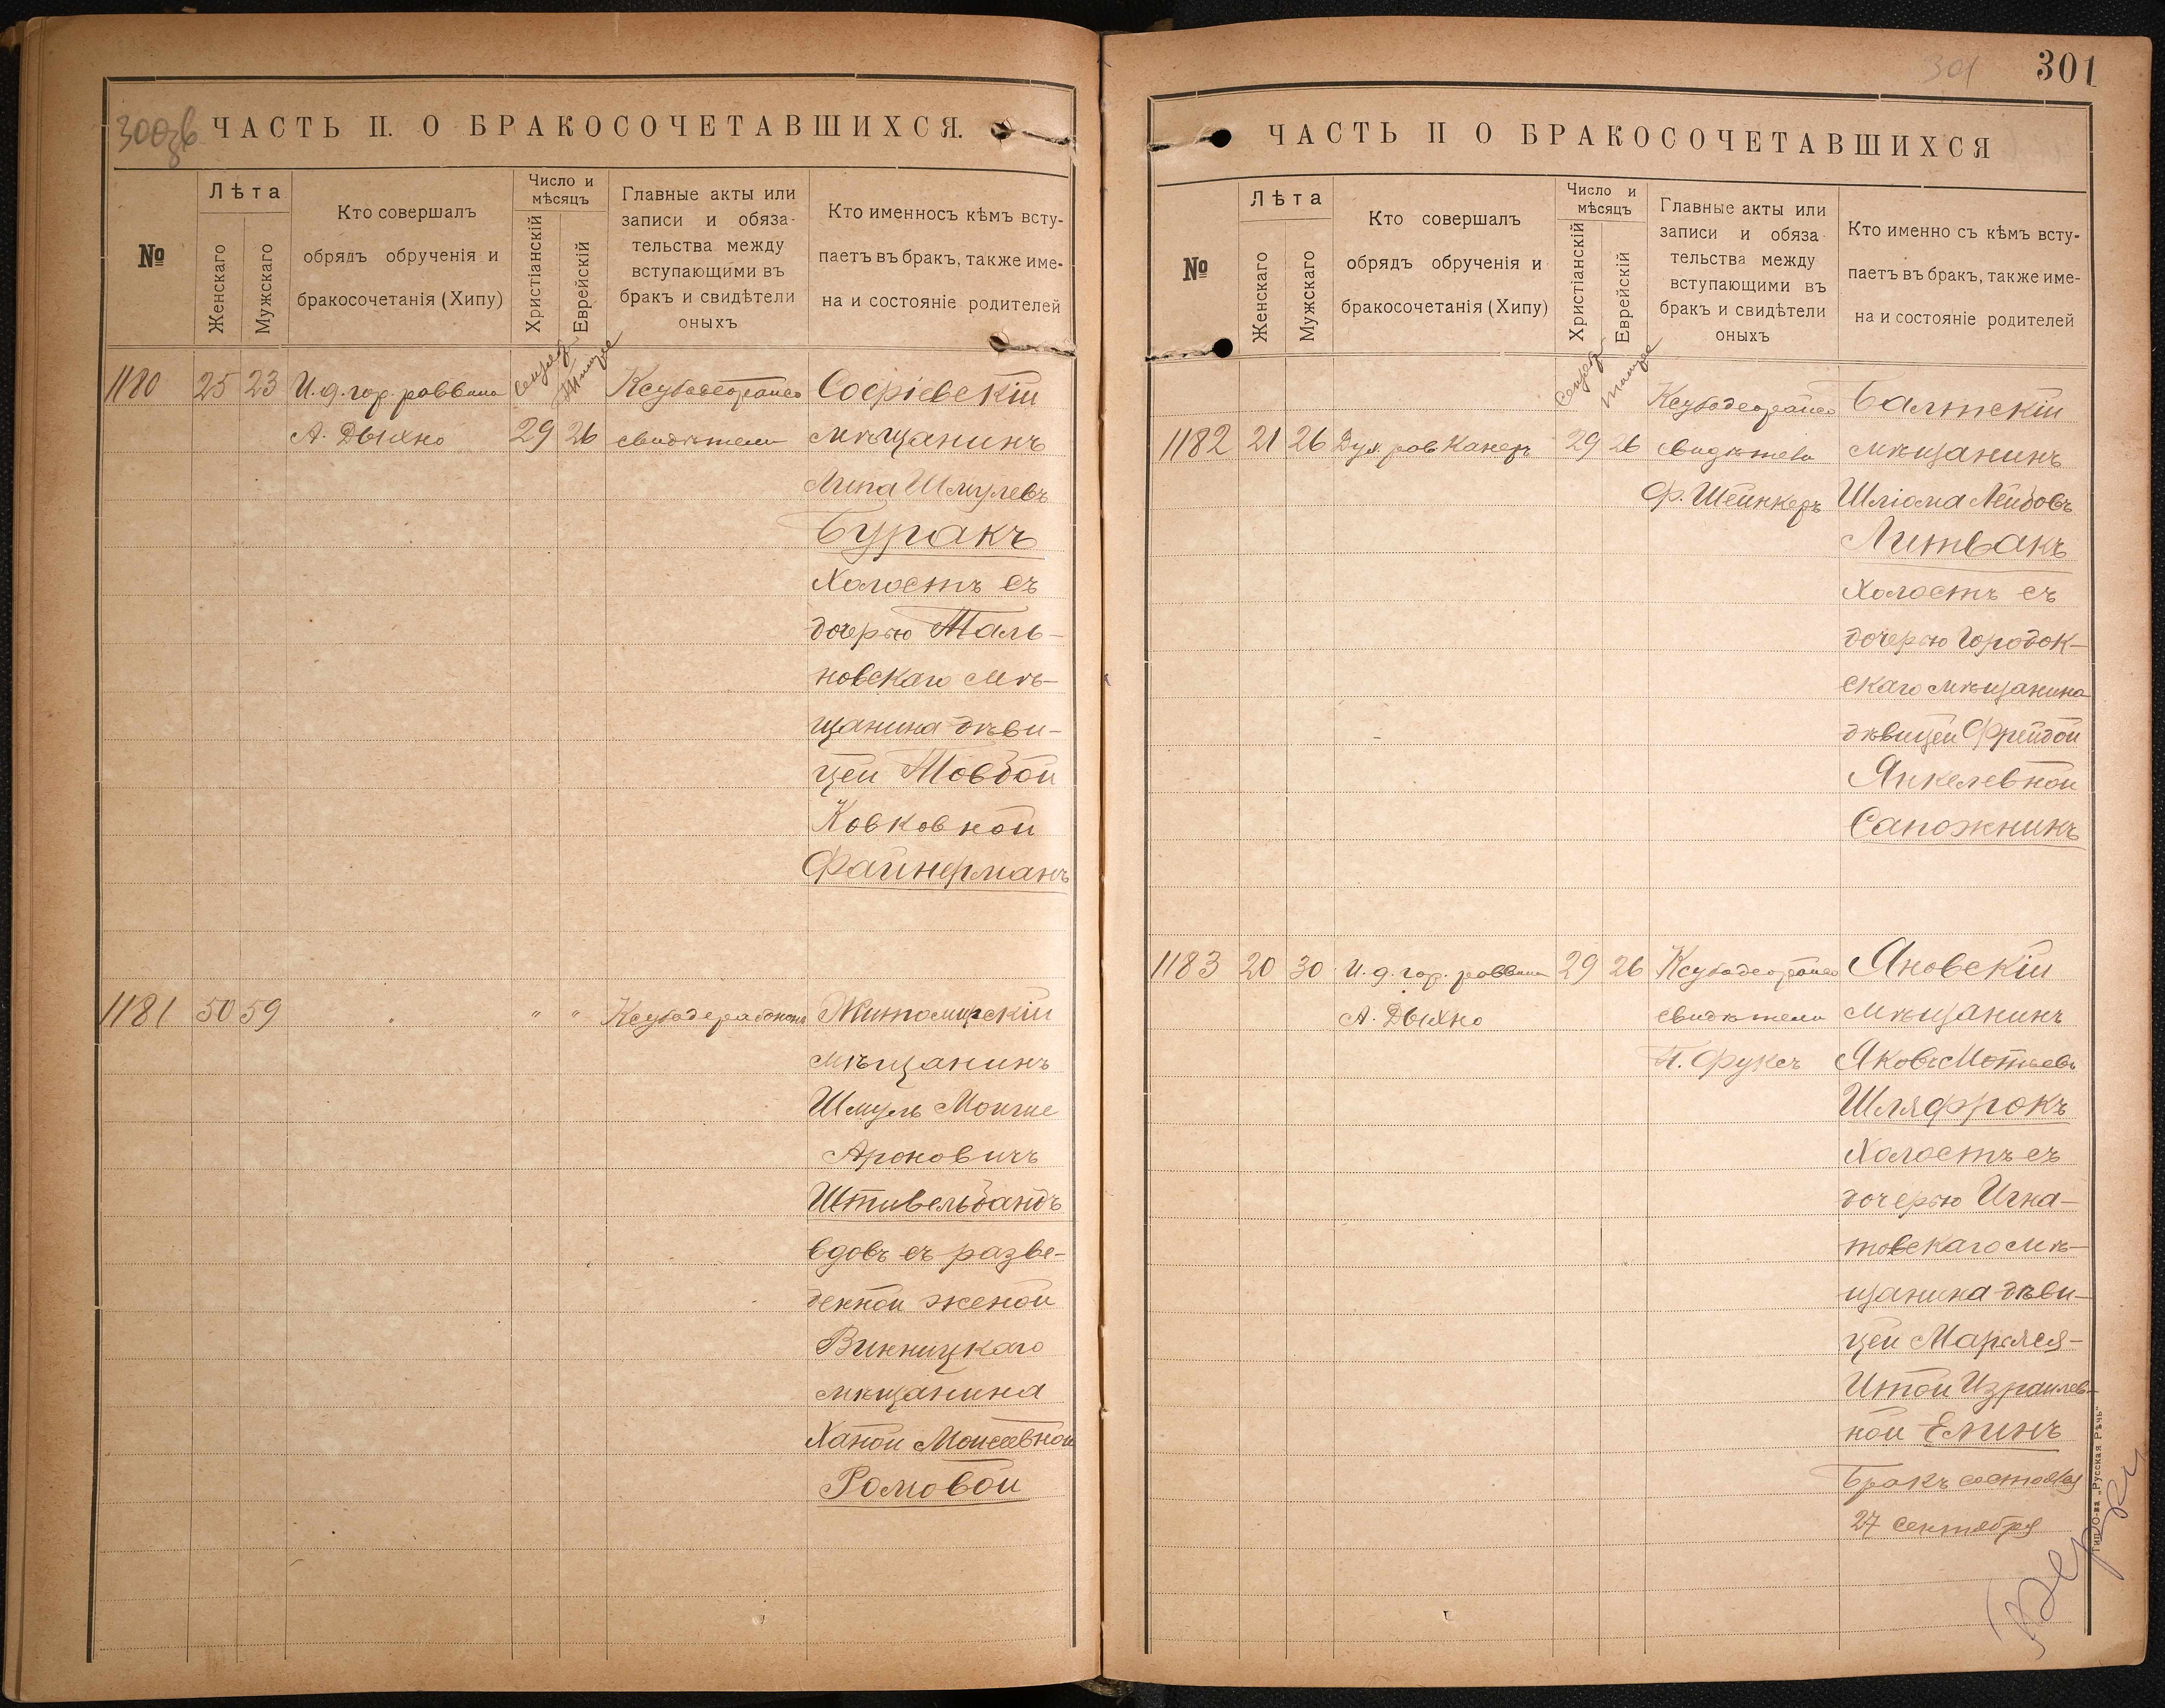 300зв
ЧАСТЬ II. О БРАКОСОЧЕТАВШИХСЯ.
№
Лѣта
Женскаго
Мужскаго
Кто совершалъ
обрядъ обрученія и
бракосочетанія (Хипу)
Число и
мѣсяцъ
Христіанскій
Еврейскій
Главные акты или
записи и обяза-
тельства между
вступающими въ
бракъ и свидѣтели
оныхъ
Кто именносъ кѣмъ всту-
паетъ въ бракъ, также име-
на и состояніе родителей
1180 25 23 И. д. гор. раввина Софіевскій
А. Дыхно 29 26 свидѣтели мѣщанинъ
Липа Шмулевъ
Буракъ
Холостъ съ
дочерью Таль-
новскаго мѣ-
щанина дѣви-
цей Товбой
Ковковной
Файнерманъ
1181 50 59 " " Житомирскій
мѣщанинъ
Шмуль Моише
Ароновичъ
Штивельбандъ
вдовъ съ разве-
денной женой
Винницкаго
мѣщанина
Ханой Моисеевной
Ромовой
301
301
ЧАСТЬ II О БРАКОСОЧЕТАВШИХСЯ
№
Лѣта
Женскаго
Мужскаго
Кто совершалъ
обрядъ обрученія и
бракосочетанія (Хипу)
Число и
мѣсяцъ
Христіанскій
Еврейскій
Главные акты или
записи и обяза
тельства между
вступающими въ
бракъ и свидѣтели
оныхъ
Кто именно съ кѣмъ всту-
паетъ въ бракъ, также име-
на и состояніе родителей
Балтскій
1182 21 26 Дух. рав Канеръ 29 26 свидѣтели мѣщанинъ
Ф. Шейнкеръ Шліома Лейбовъ
Литвакъ
Холостъ съ
дочерью Городок-
скаго мѣщанина
дѣвицей Фрейдой
Янкелевной
Сапожникъ
1183 20 30 И. д. гор. раввина 29 26 Яновскій
А. Дыхно свидѣтели мѣщанинъ
П. Фуксъ Яковъ Мотьевъ
Шляфрокъ
Холостъ съ
дочерью Игна-
товскаго мѣ-
щанина дѣви-
цей Марьяся-
Итой Израилев-
ной Елинъ
Бракъ состоялся
27 Сентября
Тип. О-ва „Русская Рѣчь"